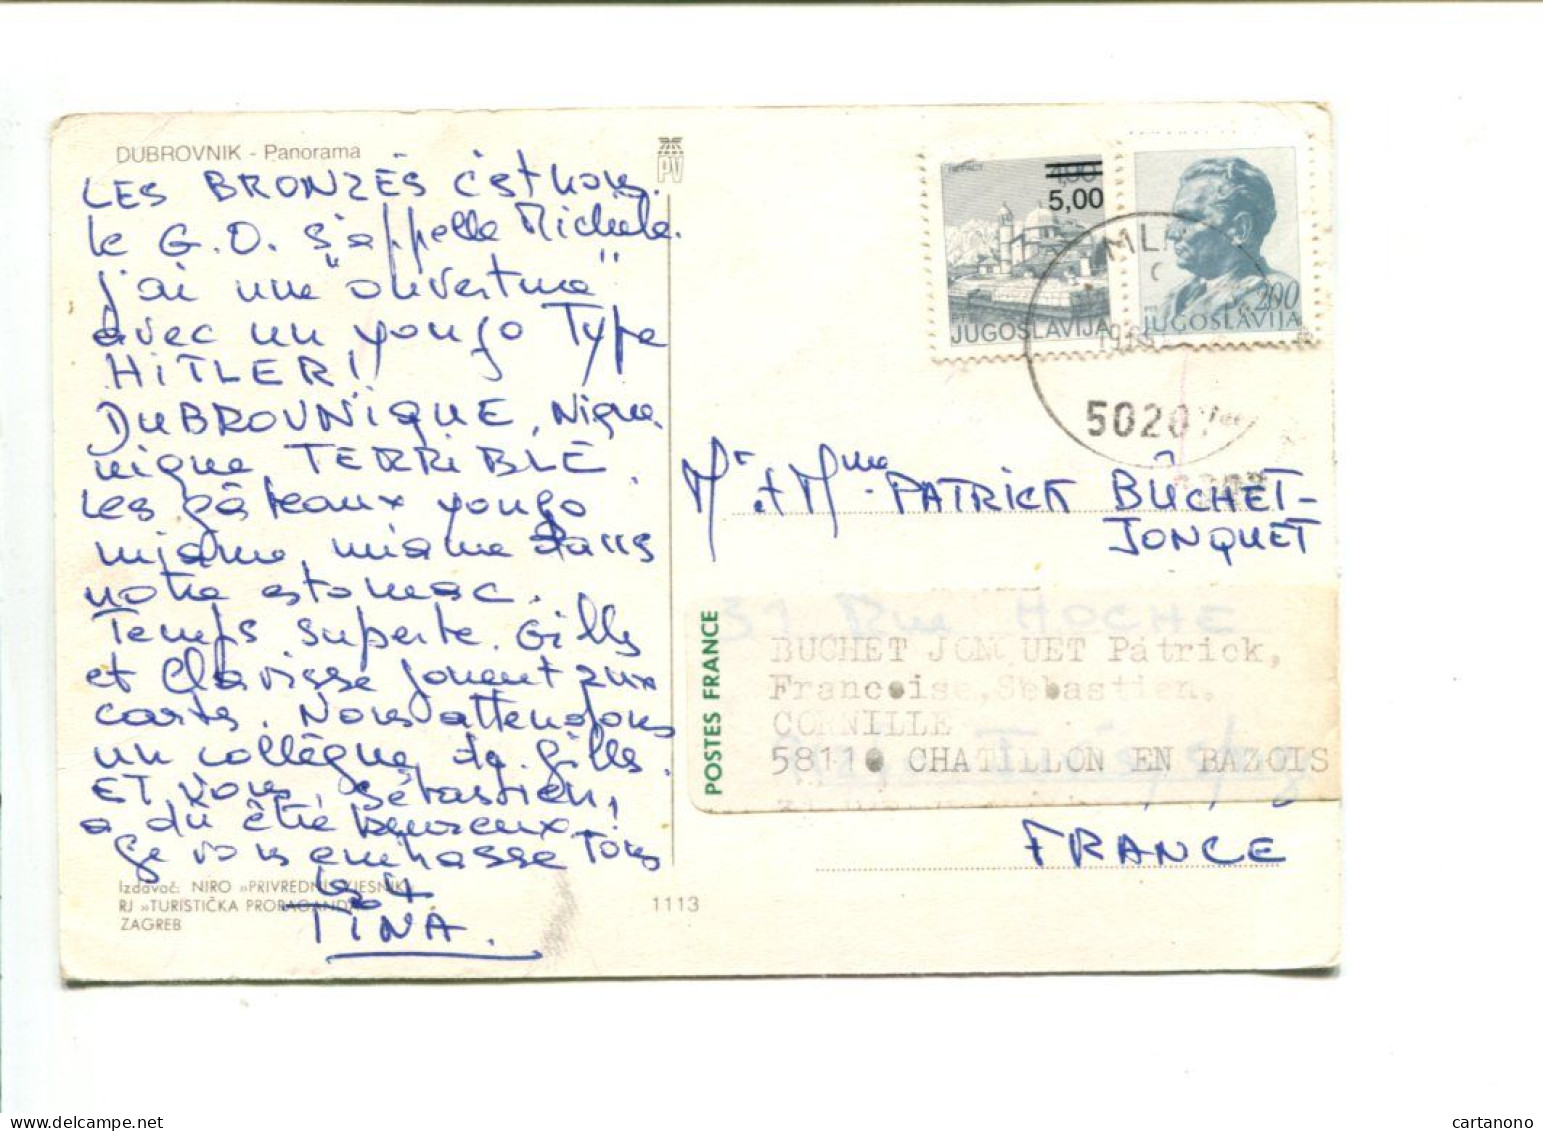 DUBROVNIK - Panorama
LES BRONZÉS c'est nous.
le G.O. s'appelle Michèle.
j'ai une "ouvertue"
avec un yougo Type
HITLER!
DUBROVNIQUE, nique
nique TERRIBLE.
les gâteaux yougo
miame, miame dans
notre estomac.
Temps superbe. Gilles
et Clarisse jouent aux
cartes. Nous attendons
un collègue de Gilles.
ET vous, Sébastien,
a dû être heureux!
Je vous embrasse Tous
les 4
TINA.
Izdavač: NIRO »PRIVREDNI VJESNIK«
RJ »TURISTIČKA PROPAGANDA«
ZAGREB
1113
PV
4,90
5,00
JUGOSLAVIJA
2,00
JUGOSLAVIJA
5020
Mr et Mme PATRICK BÛCHET-
JONQUET
31 Rue HOCHE
POSTES FRANCE
BUCHET JONQUET Patrick,
Francoise, Sebastien.
CORNILLE
58110 CHATILLON EN BAZOIS
FRANCE
cartanono